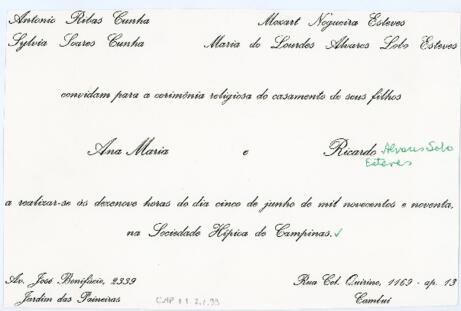 Antonio Ribas Cunha Mozart Nogueira Esteves
Sylvia Soares Cunha Maria de Lourdes Alvares Lobo Esteves
convidam para a cerimônia religiosa do casamento de seus filhos
Ana Maria e Ricardo Alvares Lobo
Esteves
a realizar-se às dezenove horas do dia cinco de junho de mil novecentos e noventa,
na Sociedade Hípica de Campinas. ✓
Av. José Bonifácio, 2339 Rua Cel. Quirino, 1169 - ap. 13
Jardim das Paineiras CMP 1.1.2.1.99 Cambuí